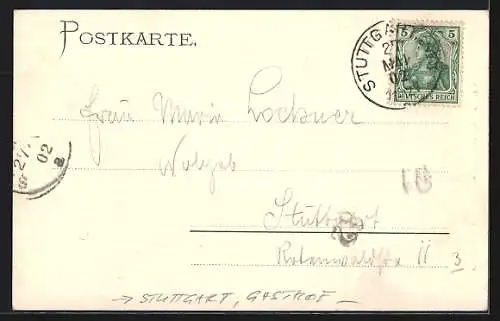 POSTKARTE.
STUTTGART
MAI
02
5 5
DEUTSCHES REICH
Frau Maria Lockner
Wohlgeb
Stuttgart
Rotenwaldstr 11 3
27.
02
→ STUTTGART, GASTHOF —